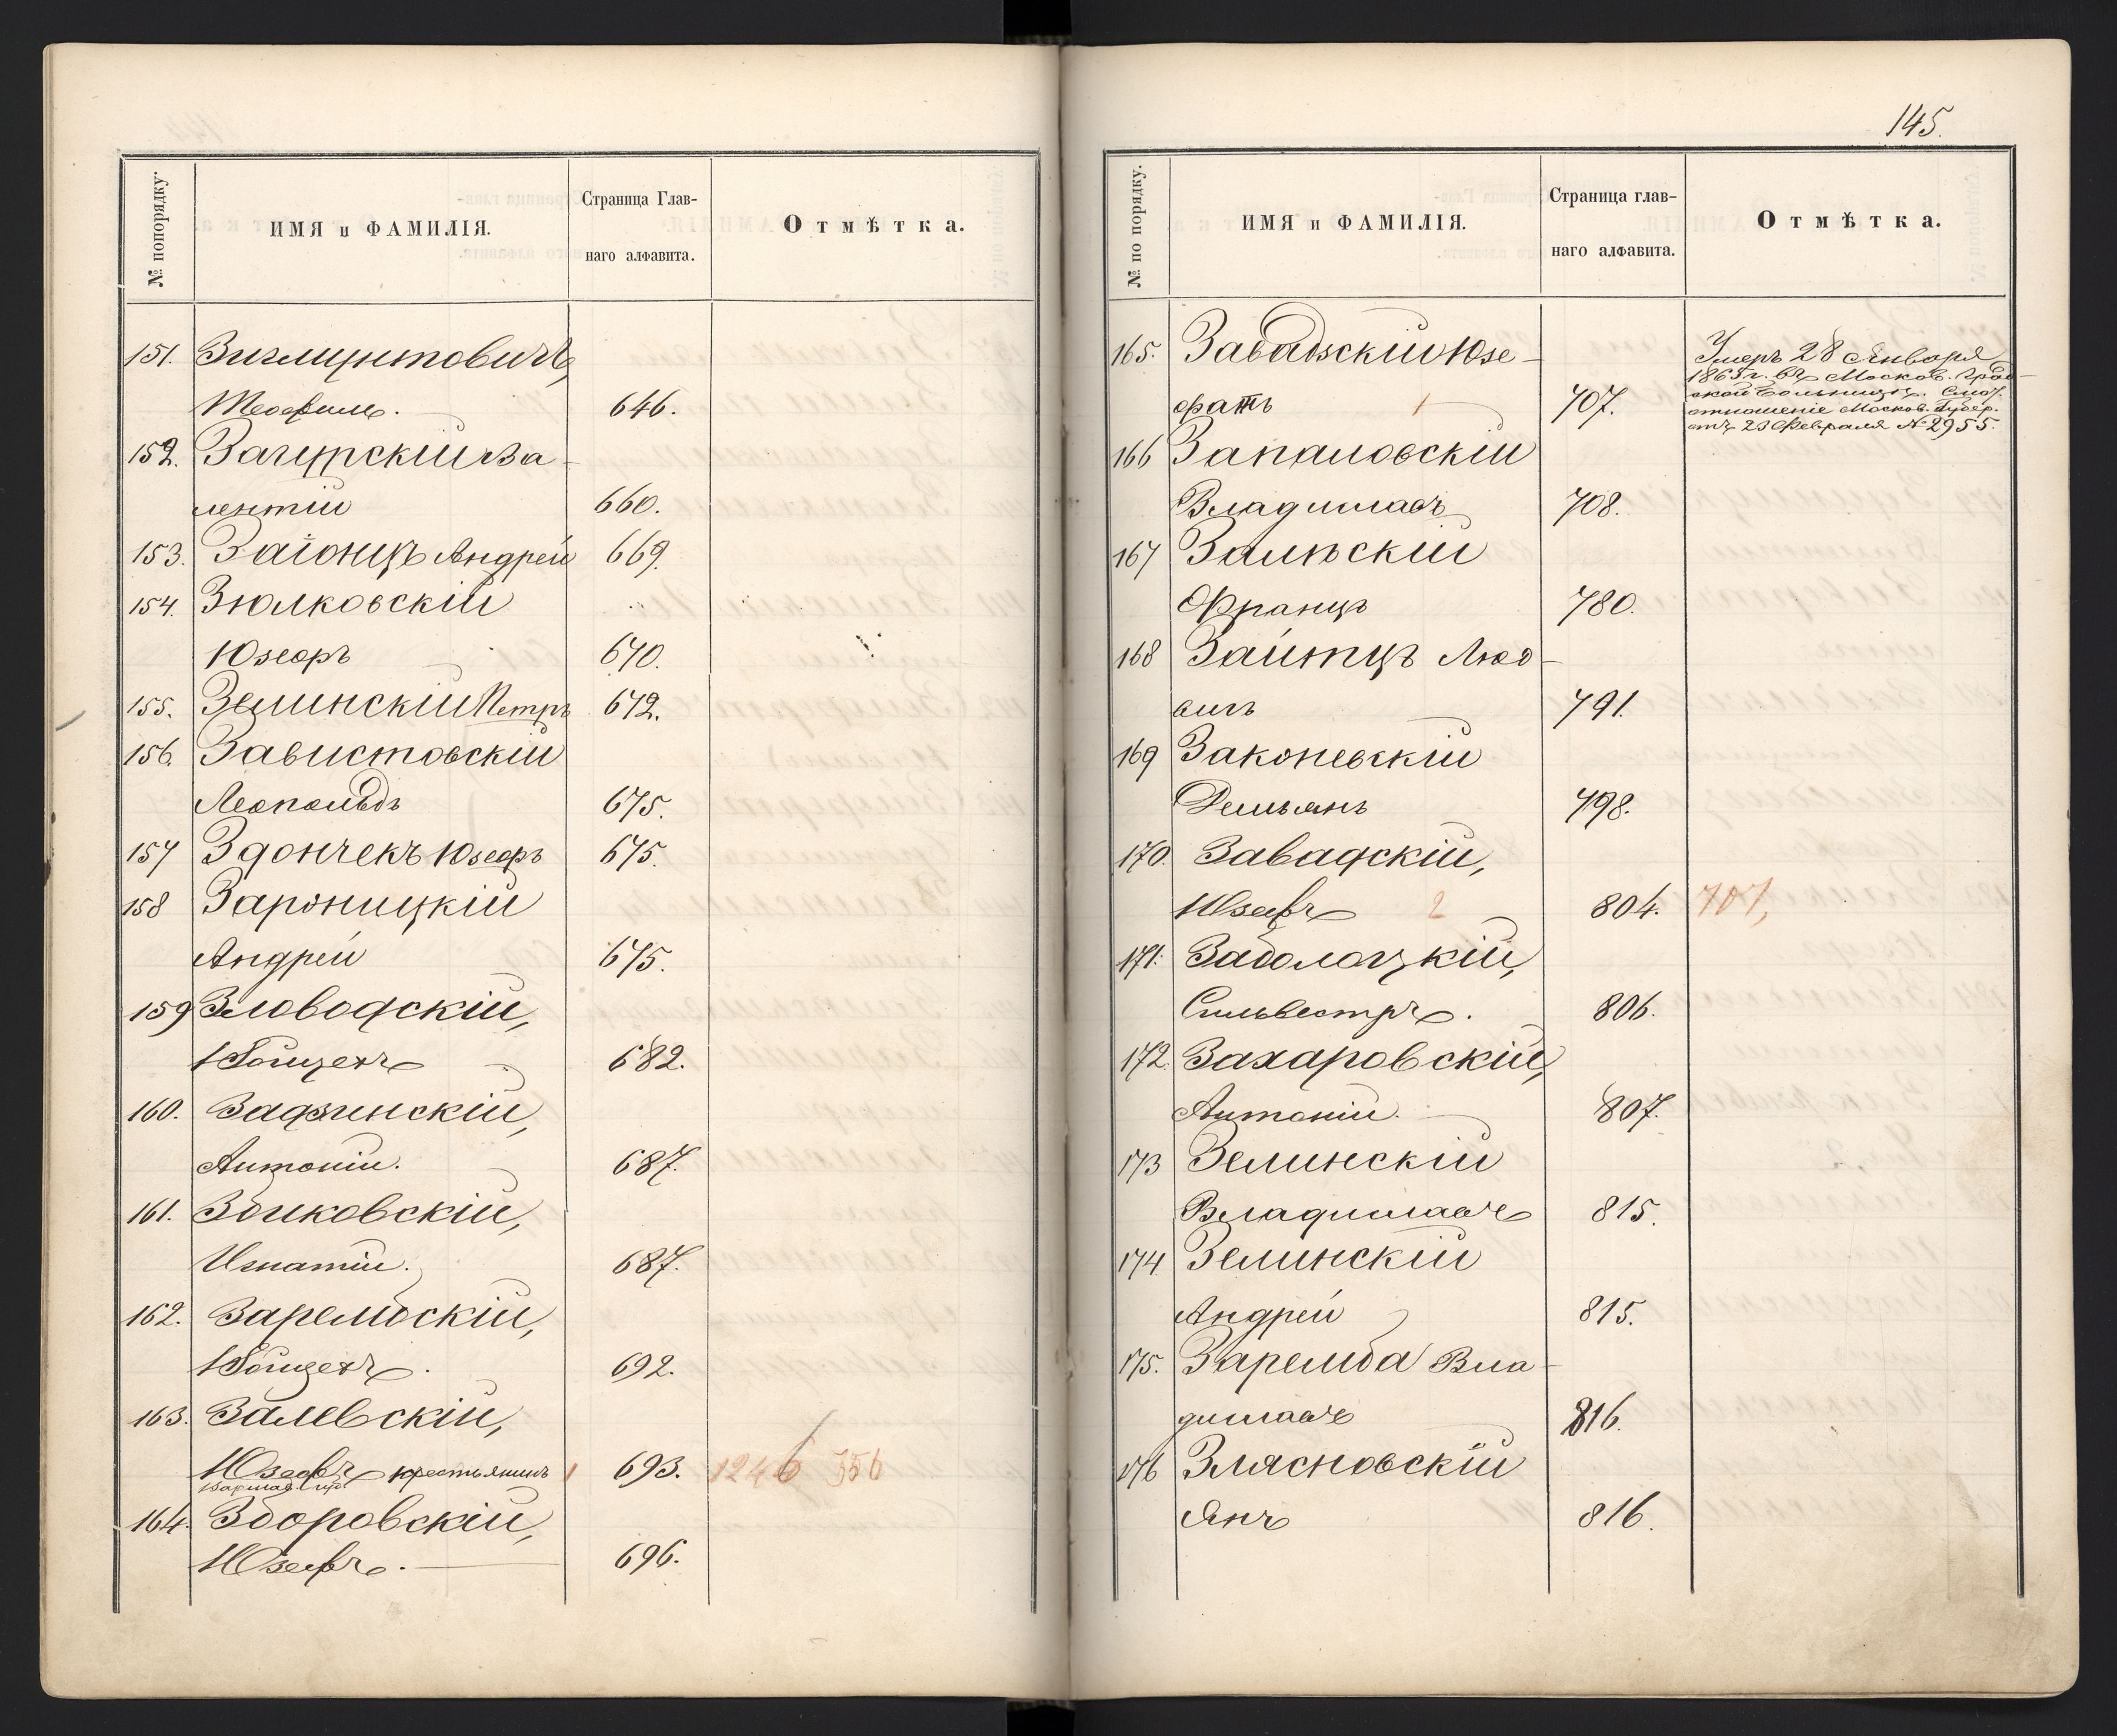 № попорядку.
ИМЯ и ФАМИЛІЯ.
Страница Глав-
наго алфавита.
Отмѣтка.
151. Зигмунтовичъ,
Теофилъ. 646.
152. Загурскій Ва-
лентій 660.
153. Заіонцъ Андрей 669.
154. Зюлковскій
Юзефъ 670.
155. Зелинскій Петръ 672.
156. Завистовскій
Леопольдъ 675.
157 Здончекъ Юзефъ 675.
158 Зароницкій
Андрей 675.
159 Зловодскій,
Войцехъ 682.
160. Задзинскій,
Антоній. 687.
161. Збиковскій,
Игнатій. 687.
162. Зарембскій,
Войцехъ. 692.
163. Залевскій,
Юзефъ крестьянинъ 1 693. 1246 356
Варшав. губ.
164. Зборовскій,
Юзефъ. 696.
145.
№ по порядку.
ИМЯ и ФАМИЛІЯ.
Страница глав-
наго алфавита.
Отмѣтка.
165. Завадзскій Юзе-
фатъ 1 707.
Умеръ 28 Января
1865 г. въ Москов. град-
ской больницѣ. Смот.
отношеніе Москов. Губер.
отъ 23 Февраля № 2955.
166 Запаловскій
Владиславъ 708.
167 Зальскій
Францъ 780.
168 Зайтцъ Люд-
вигъ 791.
169 Законевскій
Демьянъ 798.
170. Завадскій,
Юзефъ 2 804. 707,
171. Заболоцкій,
Сильвестръ. 806.
172. Захаровскій,
Антоній. 807.
173 Зелинскій
Владиславъ 815.
174 Зелинскій
Андрей 815.
175. Заремба Вла-
диславъ 816.
176 Злясновскій
Янъ 816.